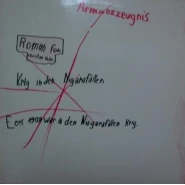 Armutszeugnis
Roman für
Krig in den Nigarafällen
Eers war in den Niagarafällen Krig.